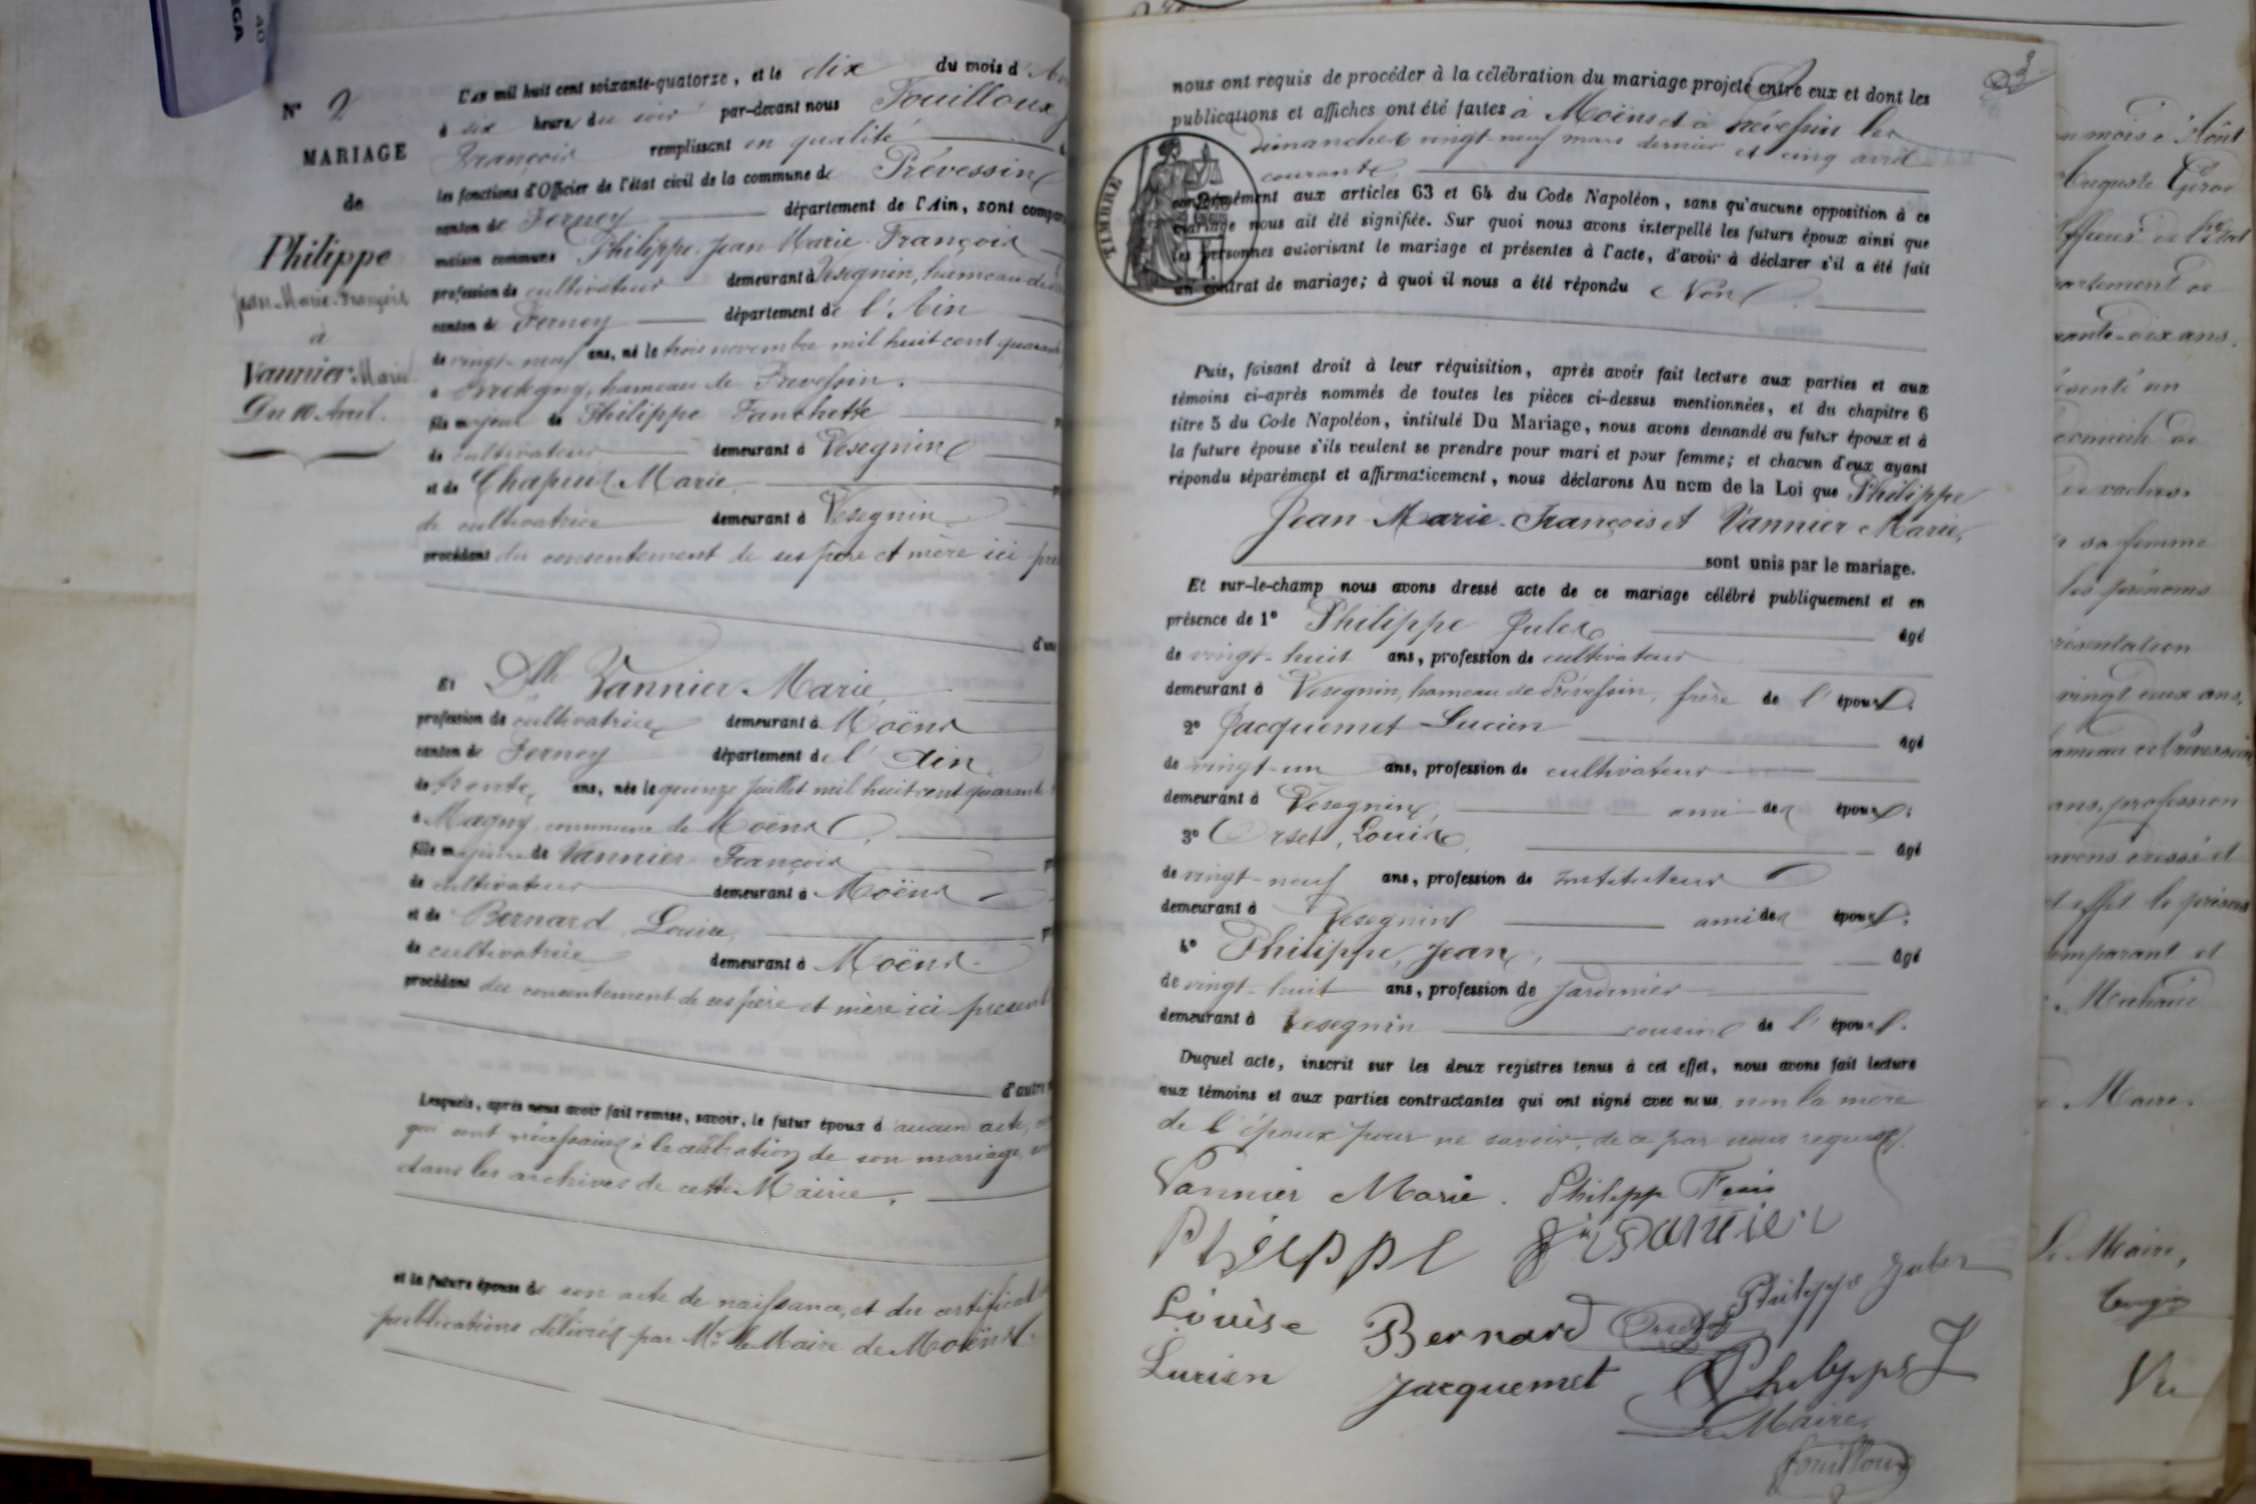 N° 2
MARIAGE
de
Philippe
Jean-Marie-François
à
Vannier Marie
Du 10 Avril.
L'an mil huit cent soixante-quatorze, et le dix du mois d'
à six heure du soir par-devant nous Fouilloux
François remplissant en qualité
les fonctions d'Officier de l'état civil de la commune de Prévessin
canton de Ferney département de l'Ain, sont
maison commune Philippe Jean Marie François
profession de cultivateur demeurant à Vesegnin, hameau de
canton de Ferney département de l'Ain
de vingt-neuf ans, né le trois novembre mil huit cent
à hameau de Prévessin.
fils majeur de Philippe Fanchette
de cultivateur demeurant à Vesegnin
et de Chapuis Marie
de cultivatrice demeurant à Vesegnin
procédant du consentement de ses père et mère ici
Et Dlle Vannier Marie,
profession de cultivatrice demeurant à Moëns
canton de Ferney département de l'Ain
de trente ans, née le quinze juillet mil huit cent quarante
à Magny, commune de Moëns
fille majeure de Vannier François
de cultivateur demeurant à Moëns
et de Bernard Louise
de cultivatrice demeurant à Moëns
procédant du consentement de ses père et mère ici présent
Lesquels, après nous avoir fait remise, savoir, le futur époux d'aucun acte,
qui sont nécessaires à la célébration de son mariage,
dans les archives de cette Mairie.
et la future épouse de son acte de naissance, et du certificat
publications délivrés par Mr le Maire de Moëns.
nous ont requis de procéder à la célébration du mariage projeté entre eux et dont les
publications et affiches ont été faites à Moëns et à Prévessin les
dimanches vingt-neuf mars dernier et cinq avril
courant,
TIMBRE
conformément aux articles 63 et 64 du Code Napoléon, sans qu'aucune opposition à ce
mariage nous ait été signifiée. Sur quoi nous avons interpellé les futurs époux ainsi que
les personnes autorisant le mariage et présentes à l'acte, d'avoir à déclarer s'il a été fait
un contrat de mariage; à quoi il nous a été répondu Non
Puis, faisant droit à leur réquisition, après avoir fait lecture aux parties et aux
témoins ci-après nommés de toutes les pièces ci-dessus mentionnées, et du chapitre 6
titre 5 du Code Napoléon, intitulé Du Mariage, nous avons demandé au futur époux et à
la future épouse s'ils veulent se prendre pour mari et pour femme; et chacun d'eux ayant
répondu séparément et affirmativement, nous déclarons Au nom de la Loi que Philippe
Jean-Marie-François et Vannier Marie,
sont unis par le mariage.
Et sur-le-champ nous avons dressé acte de ce mariage célébré publiquement et en
présence de 1° Philippe Jules âgé
de vingt-huit ans, profession de cultivateur
demeurant à Vesegnin, hameau de Prévessin, frère de l'époux;
2° Jacquemet Lucien âgé
de vingt-un ans, profession de cultivateur
demeurant à Vesegnin, ami des époux;
3° Orset, Louis, âgé
de vingt-neuf ans, profession de instituteur
demeurant à Vesegnin ami des époux;
4° Philippe, Jean, âgé
de vingt-huit ans, profession de jardinier
demeurant à Vesegnin cousin de l'époux.
Duquel acte, inscrit sur les deux registres tenus à cet effet, nous avons fait lecture
aux témoins et aux parties contractantes qui ont signé avec nous non la mère
de l'époux pour ne savoir, de ce par nous requise.
Vannier Marie. Philippe Fçois
Philippe Vannier
Louise Bernard Orset Philippe Jules
Lucien Jacquemet Philippe J
Le Maire,
Fouilloux
ans, profession
Le Maire,
Vu